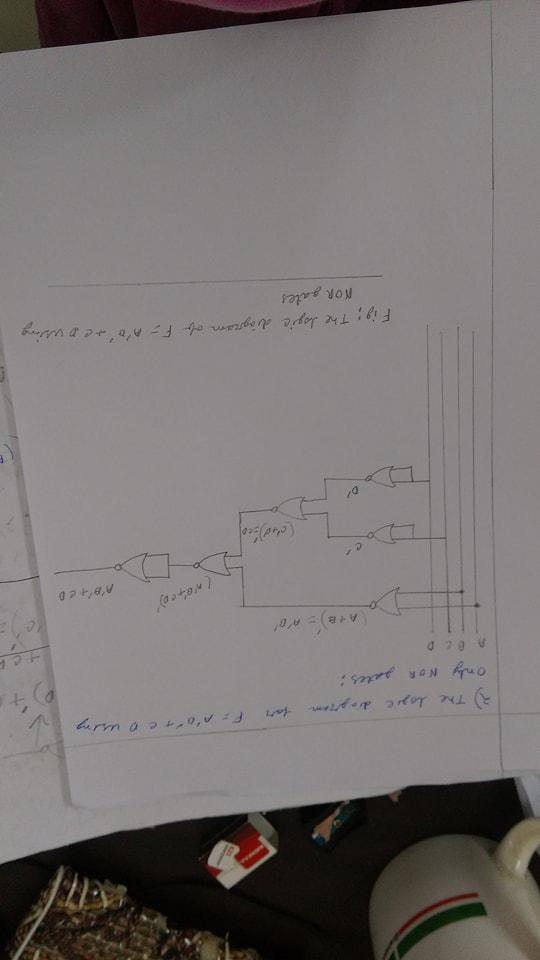 2) The logic diagram for F = A'B' + CD using
Only NOR gates:
A B C D
(A+B)' = A'B'
C'
D'
(C'+D')' = CD
(A'B'+CD)'
A'B'+CD
Fig: The logic diagram of F = A'B' + CD using
NOR gates